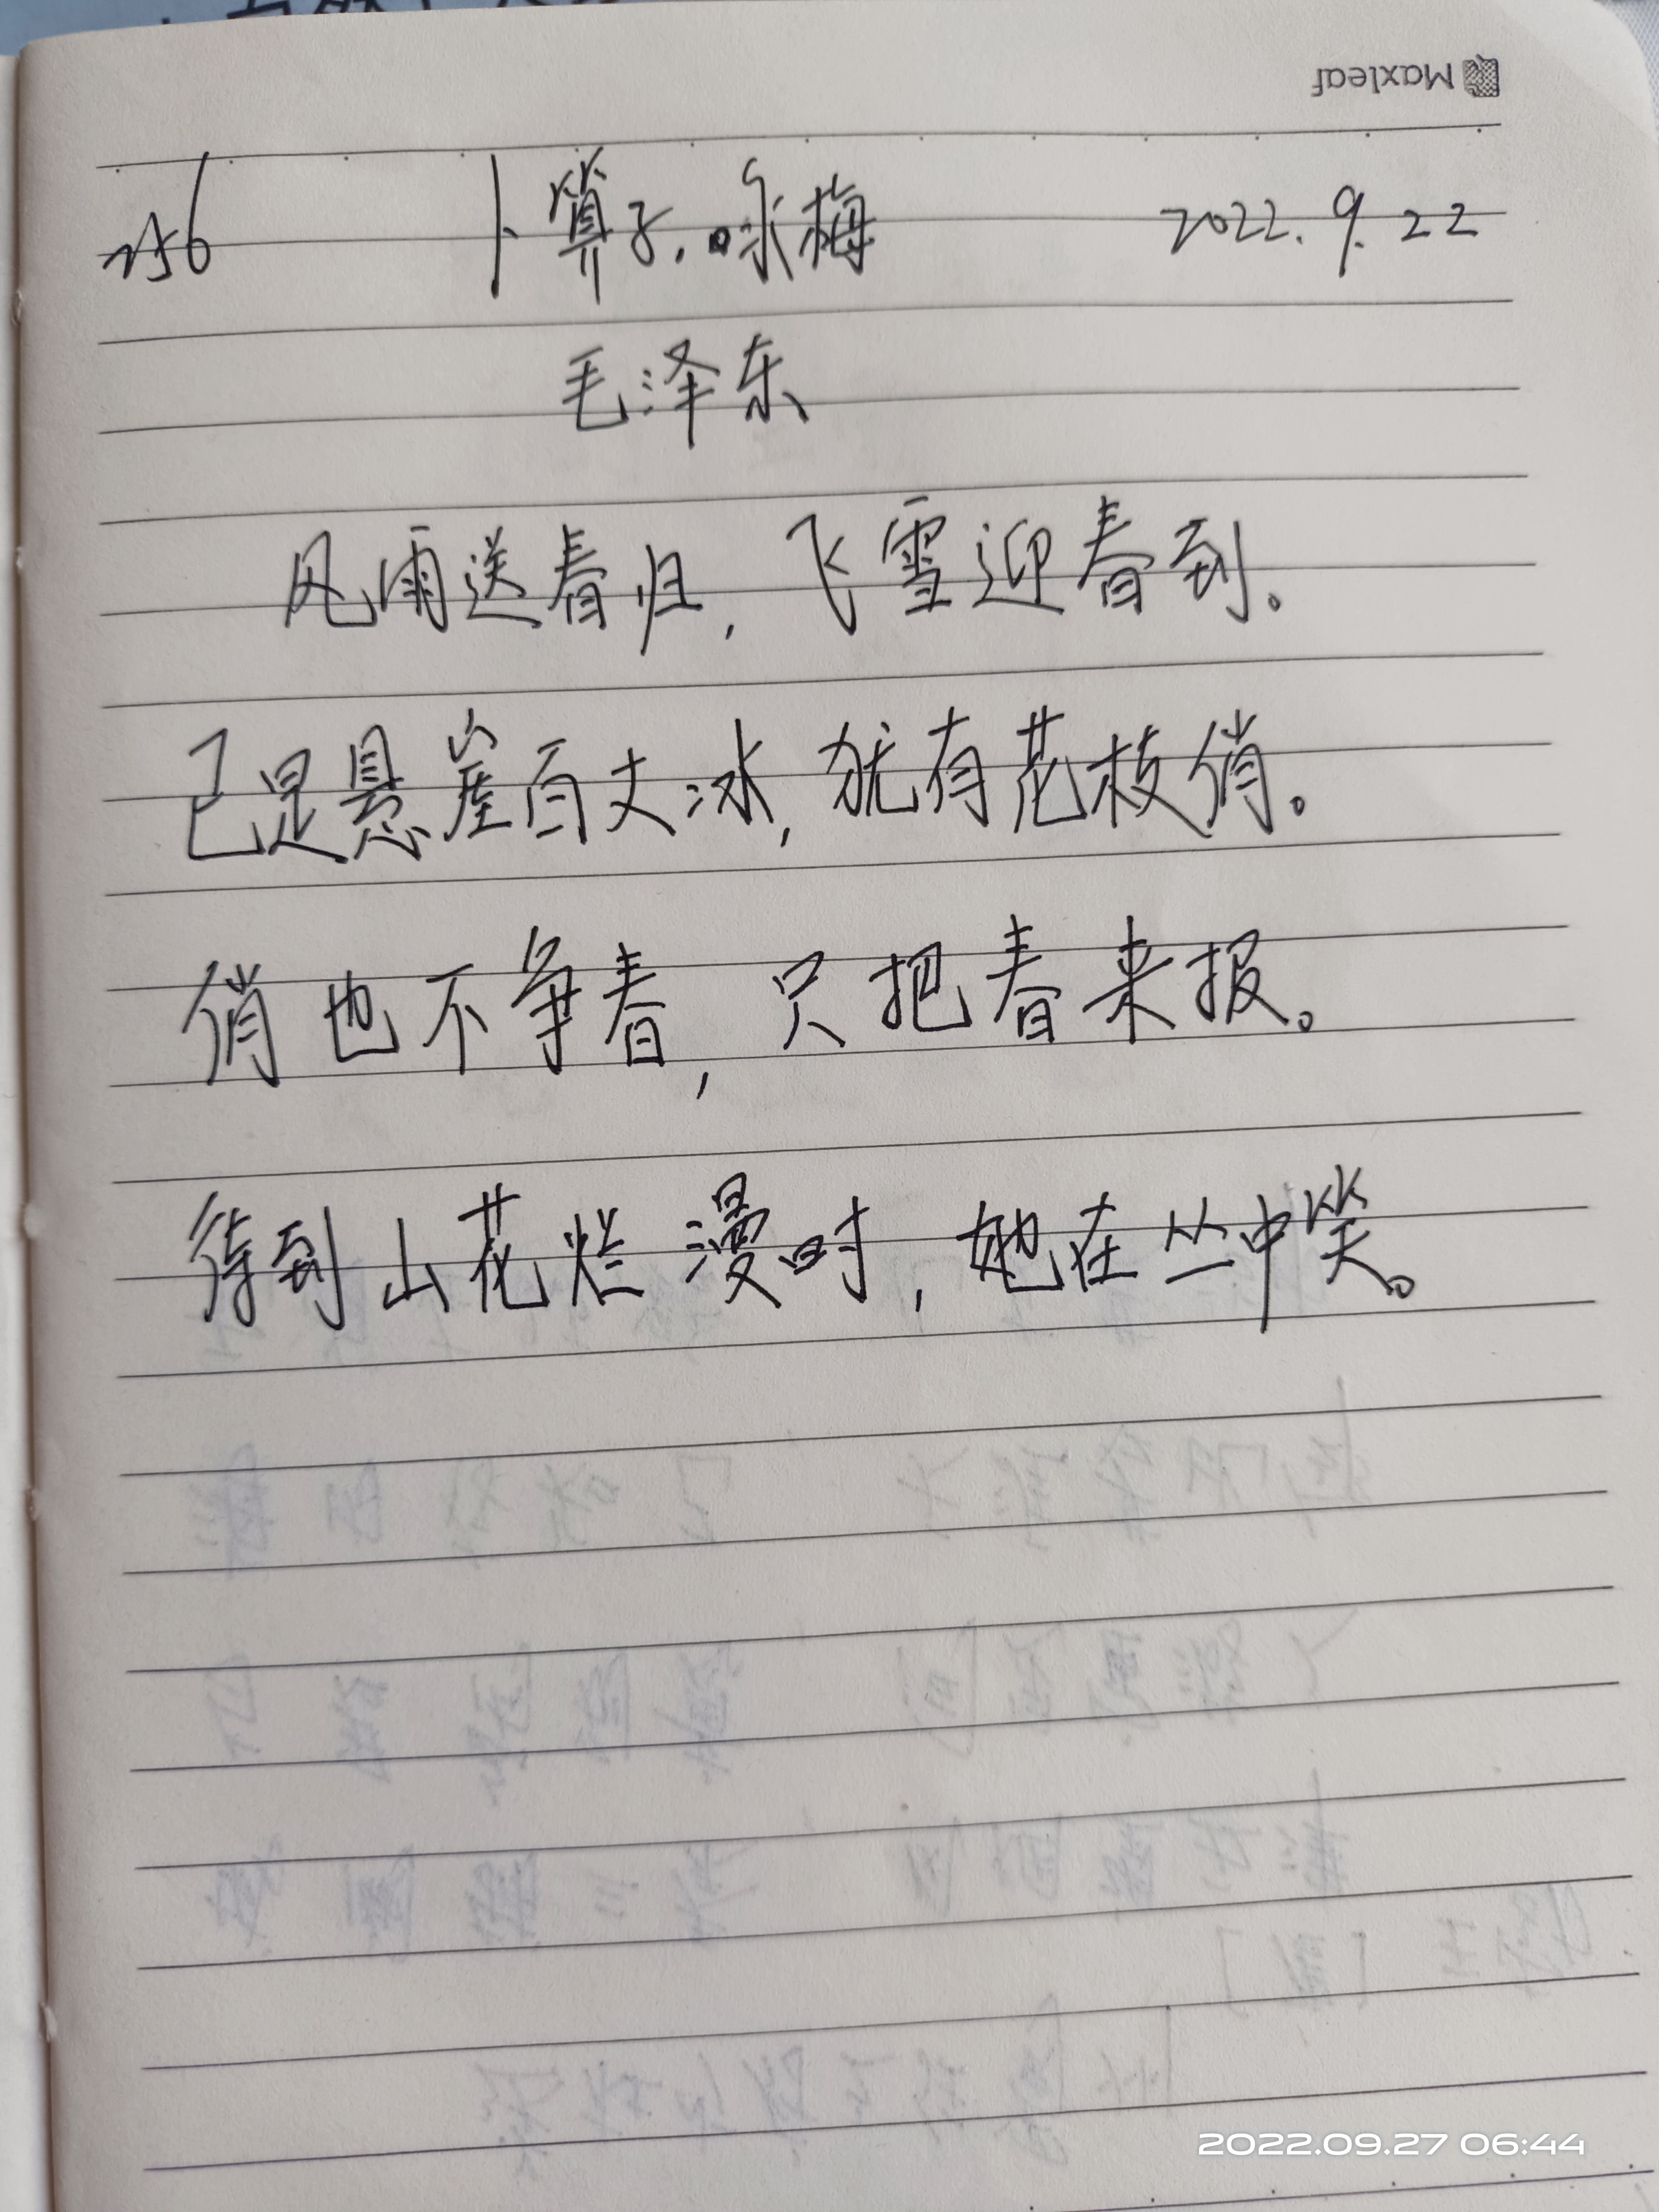 Maxleaf
256 卜算子.咏梅 2022.9.22
毛泽东
风雨送春归,飞雪迎春到。
已是悬崖百丈冰,犹有花枝俏。
俏也不争春,只把春来报。
待到山花烂漫时,她在丛中笑。
2022.09.27 06:44